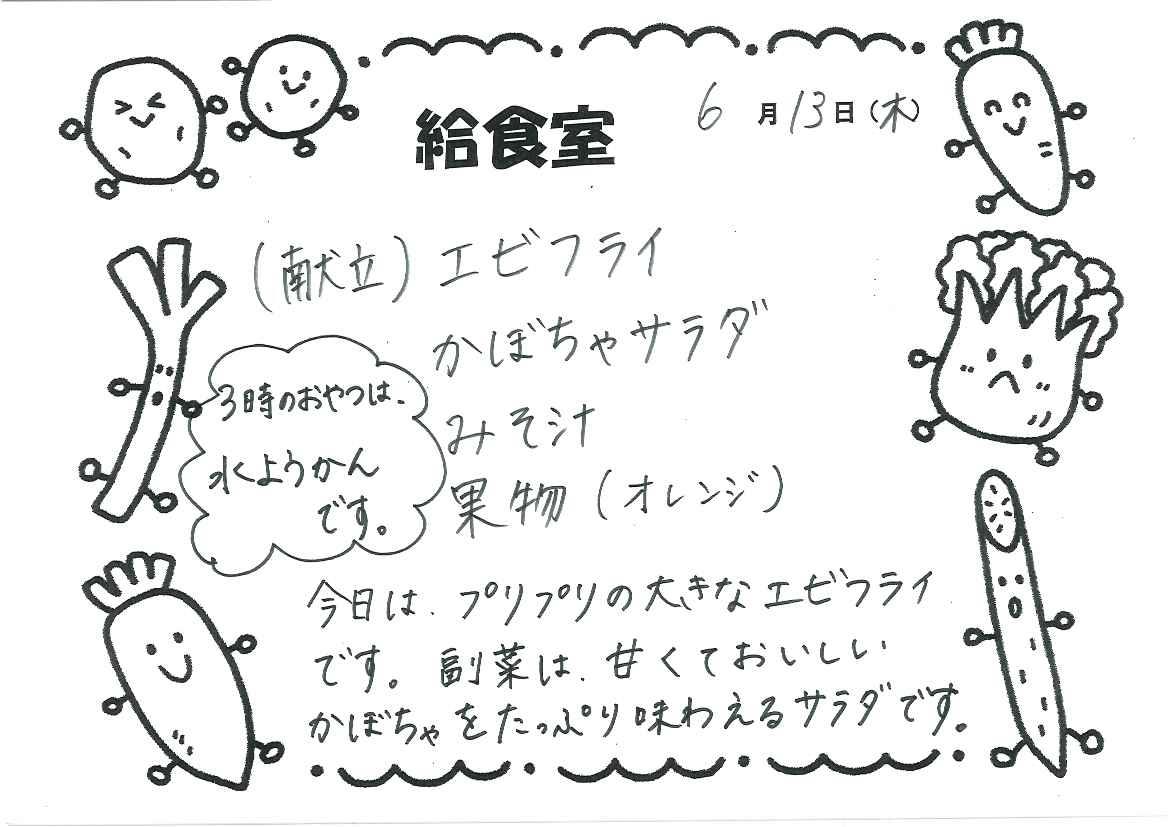 給食室
6月13日(木)
(献立)エビフライ
かぼちゃサラダ
みそ汁
果物(オレンジ)
3時のおやつは、
水ようかん
です。
今日は、プリプリの大きなエビフライ
です。副菜は、甘くておいしい
かぼちゃをたっぷり味わえるサラダです。